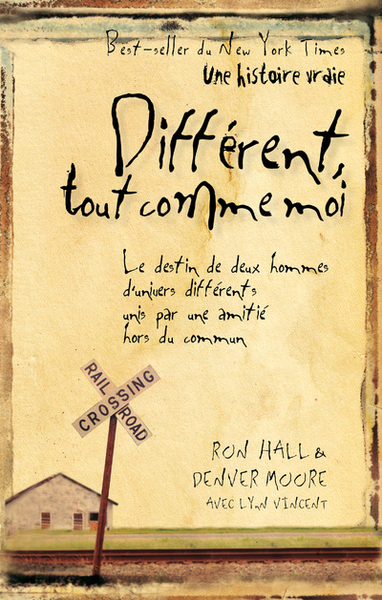 Best-seller du New York Times
Une histoire vraie
Différent,
tout comme moi
Le destin de deux hommes
d'univers différents
unis par une amitié
hors du commun
RAIL ROAD
CROSSING
RON HALL &
DENVER MOORE
AVEC LYNN VINCENT